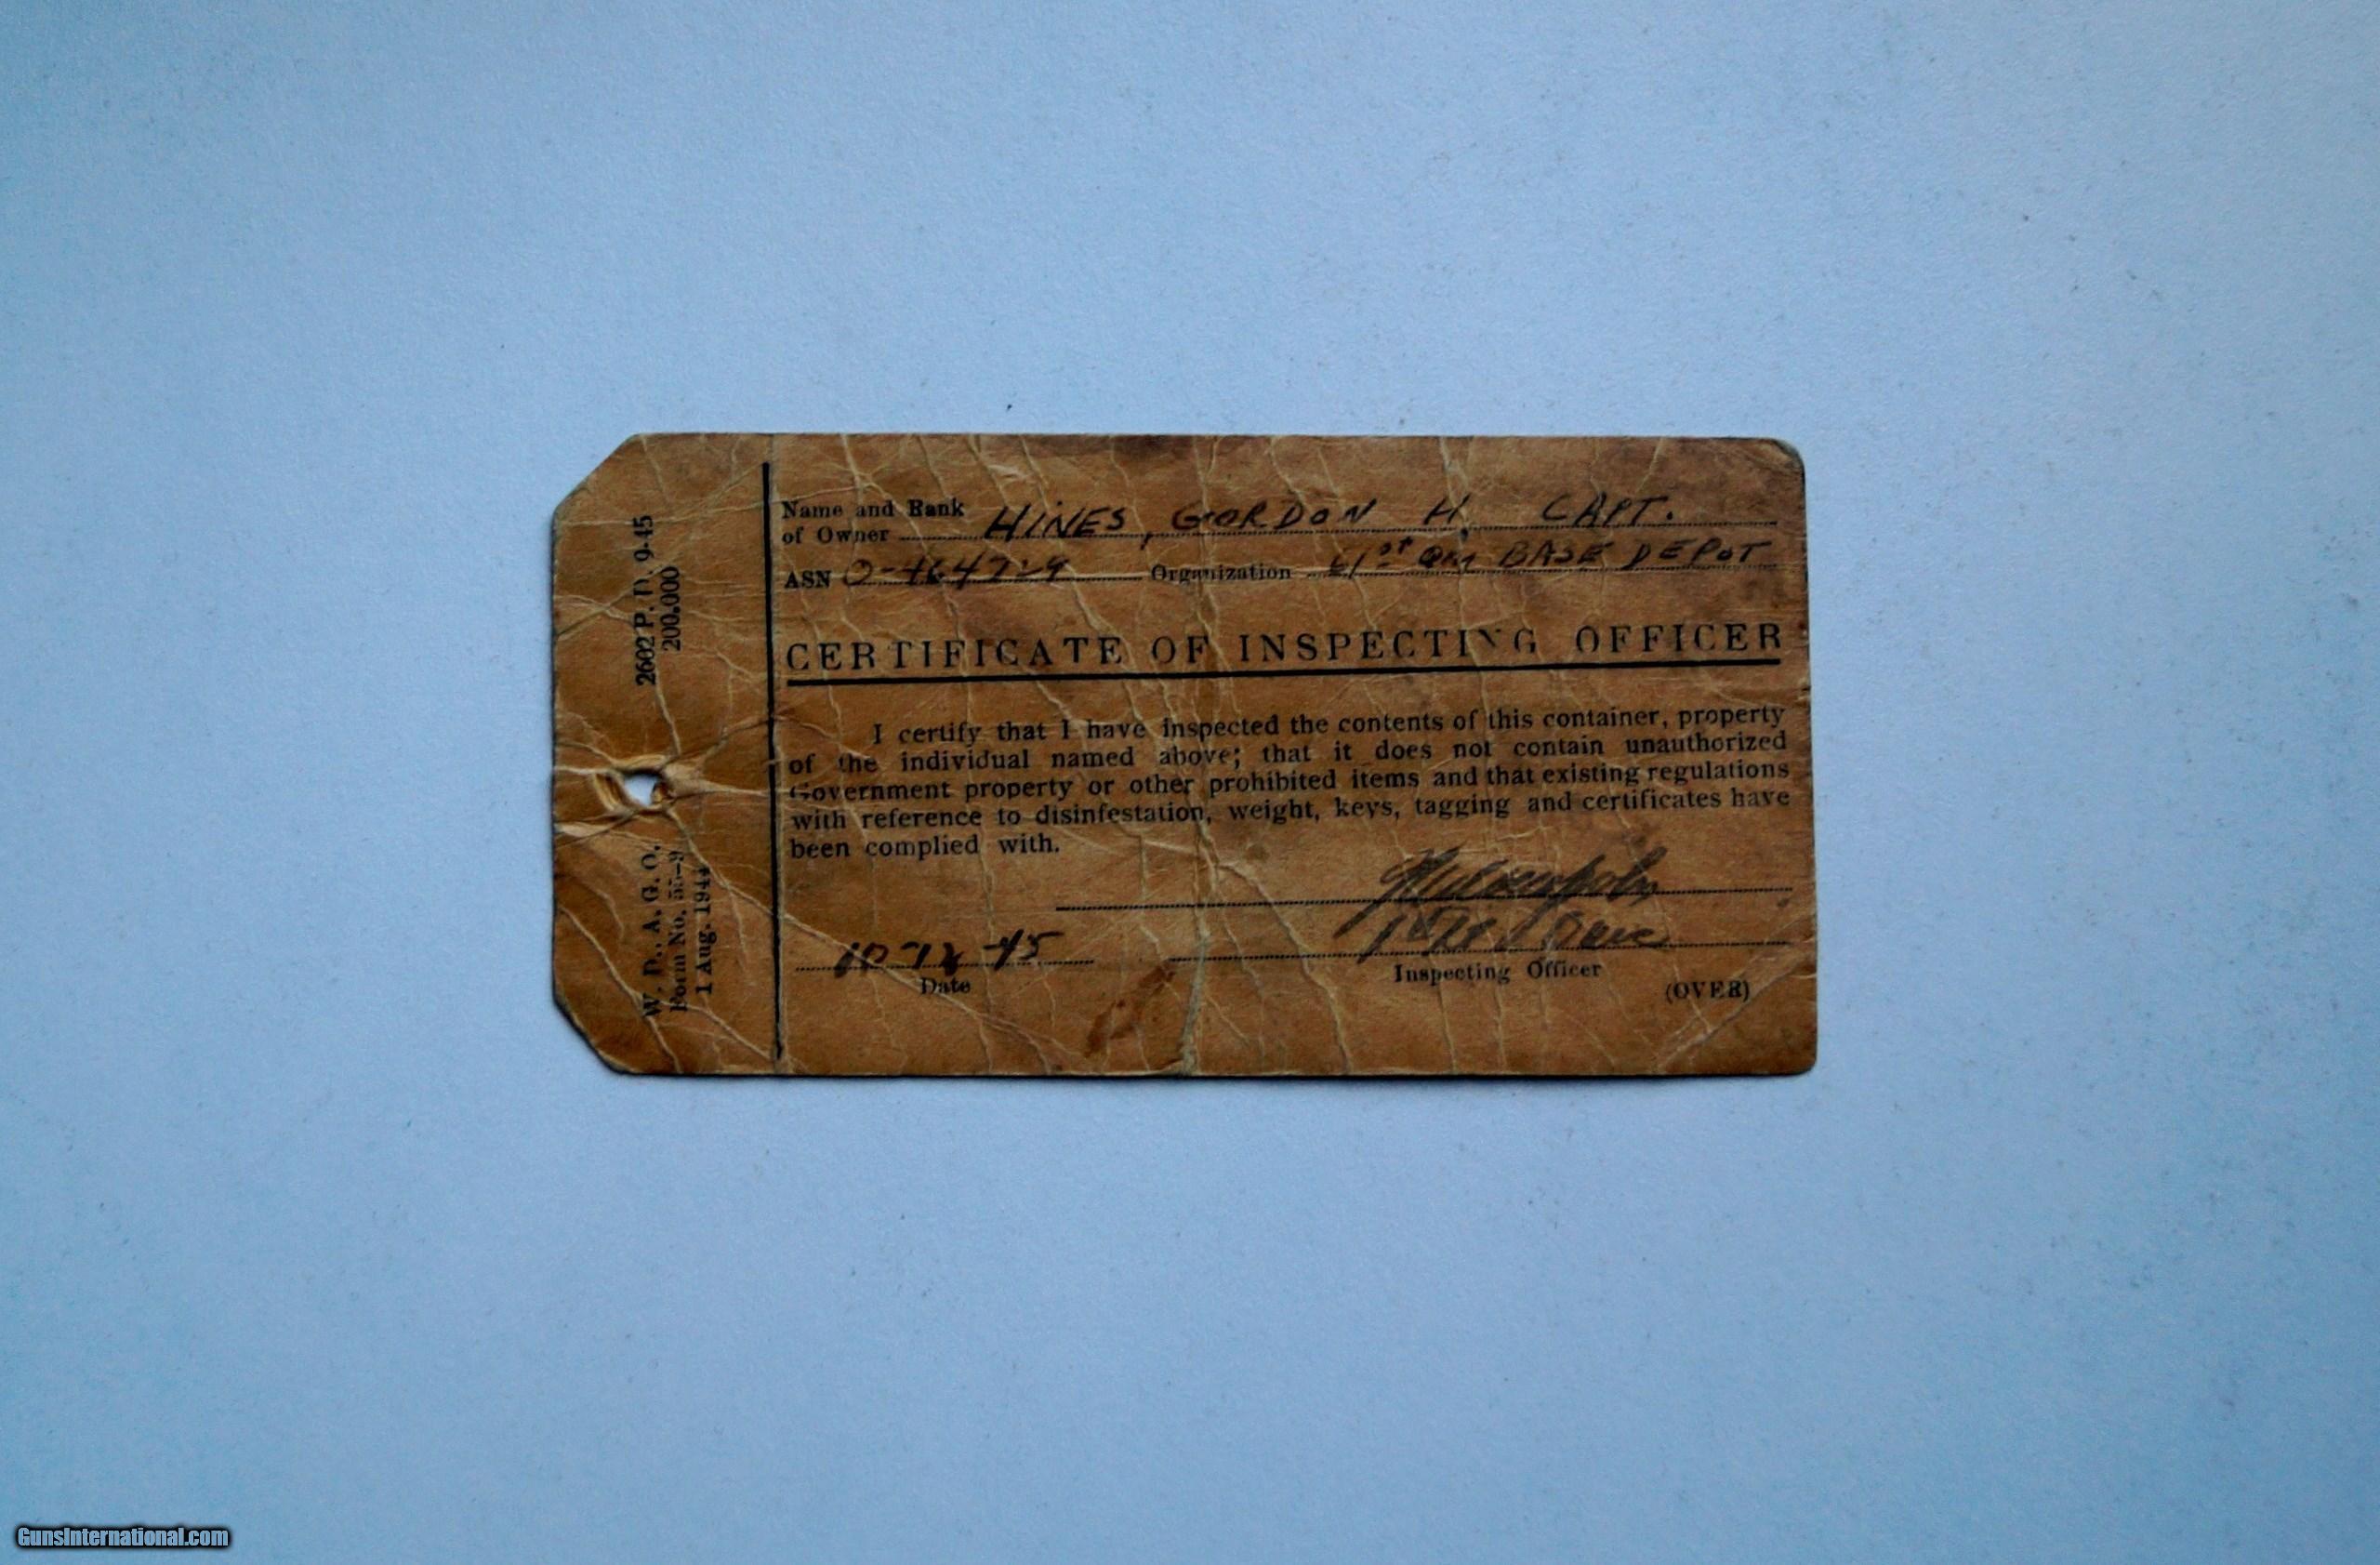 2602 P. D. 9-45
200.000
W. D., A. G. O.
Form No. 55-9
1 Aug. 1944
Name and Rank
of Owner HINES, GORDON H. CAPT.
ASN Organization 61st QM BASE DEPOT
CERTIFICATE OF INSPECTING OFFICER
I certify that I have inspected the contents of this container, property
of the individual named above; that it does not contain unauthorized
Government property or other prohibited items and that existing regulations
with reference to disinfestation, weight, keys, tagging and certificates have
been complied with.
10-12-45
Date
Inspecting Officer
(OVER)
GunsInternational.com